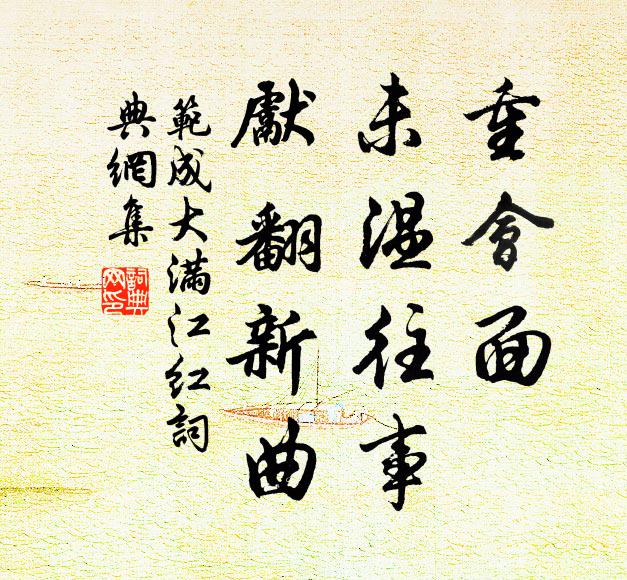 重會面
未温往事
獻翻新曲
範成大滿江红詞
典網集
詞典
网印